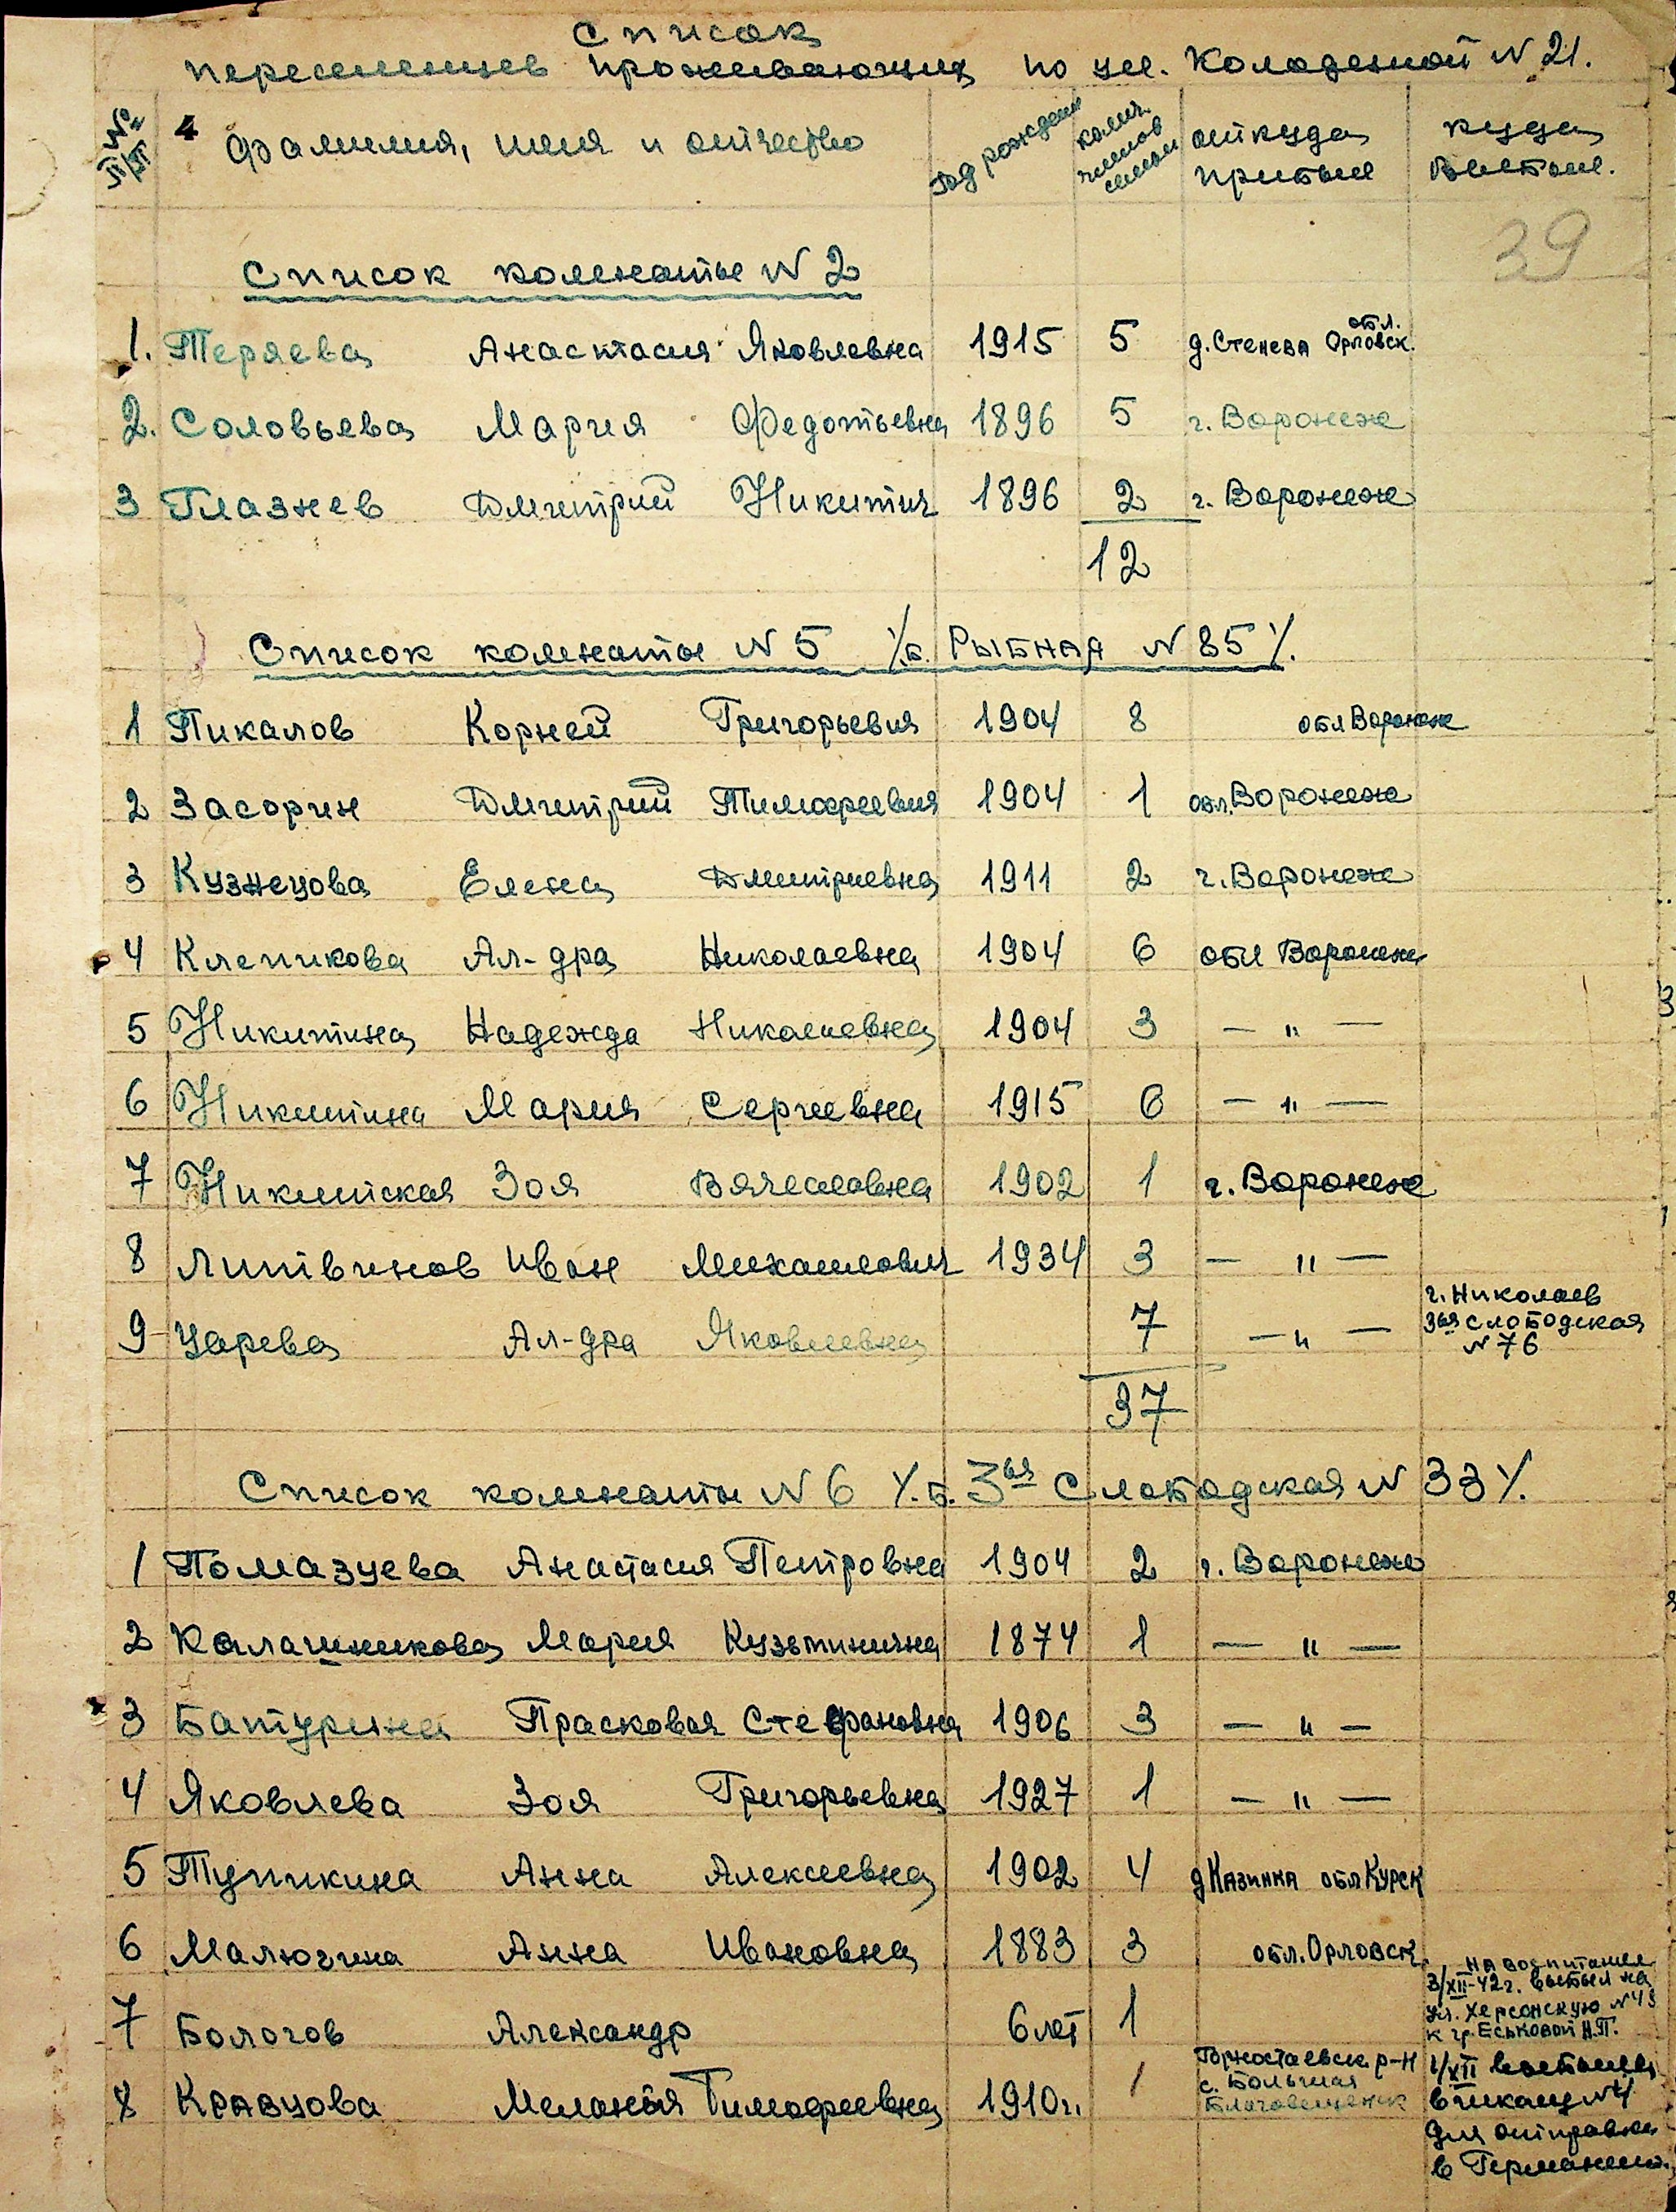 Список
переселенцев проживающих по ул. Колодезной N 21.
№ п/п
Фамилия, имя и отчество
год рождения
колич. членов семьи
откуда прибыл
куда выбыл.
39
Список комнаты N 2
1. Теряева Анастасия Яковлевна 1915 5 д. Стенева Орловск. обл.
2. Соловьева Мария Федотьевна 1896 5 г. Воронеж
3 Глазнев Дмитрий Никитич 1896 2 г. Воронеж
12
Список комнаты N 5 /.Б. Рыбная N 85/.
1 Пикалов Корней Григорьевич 1904 8 обл Воронеж
2 Засорин Дмитрий Тимофеевич 1904 1 обл. Воронеж
3 Кузнецова Елена Дмитриевна 1911 2 г. Воронеж
4 Клепикова Ал-дра Николаевна 1904 6 обл Воронеж
5 Никитина Надежда Николаевна 1904 3 — " —
6 Никитина Мария Сергеевна 1915 6 — " —
7 Никитская Зоя Вячеславовна 1902 1 г. Воронеж
8 Литвинов Иван Михайлович 1934 3 — " —
9 Царева Ал-дра Яковлевна 7 — " — г. Николаев
3ья Слободская
N 76
37
Список комнаты N 6 /.Б. 3ья Слободская N 33/.
1 Помазуева Анастасия Петровна 1904 2 г. Воронеж
2 Калашникова Мария Кузьминична 1874 1 — " —
3 Батурина Прасковья Стефановна 1906 3 — " —
4 Яковлева Зоя Григорьевна 1927 1 — " —
5 Тупикина Анна Алексеевна 1902 4 д Казинка обл Курск
6 Малюгина Анна Ивановна 1883 3 обл. Орловск.
7 Бологов Александр 6 лет 1 на воспитание
3/XII-42г. выбыл на
ул. Херсонскую
к гр. Еськовой Н.П.
8 Кравцова Мелания Тимофеевна 1910 г. 1 Горностаевск. р-н
с. Большая
Благовещенск
1/XII выбыла
N 4
для отправки
в Германию.